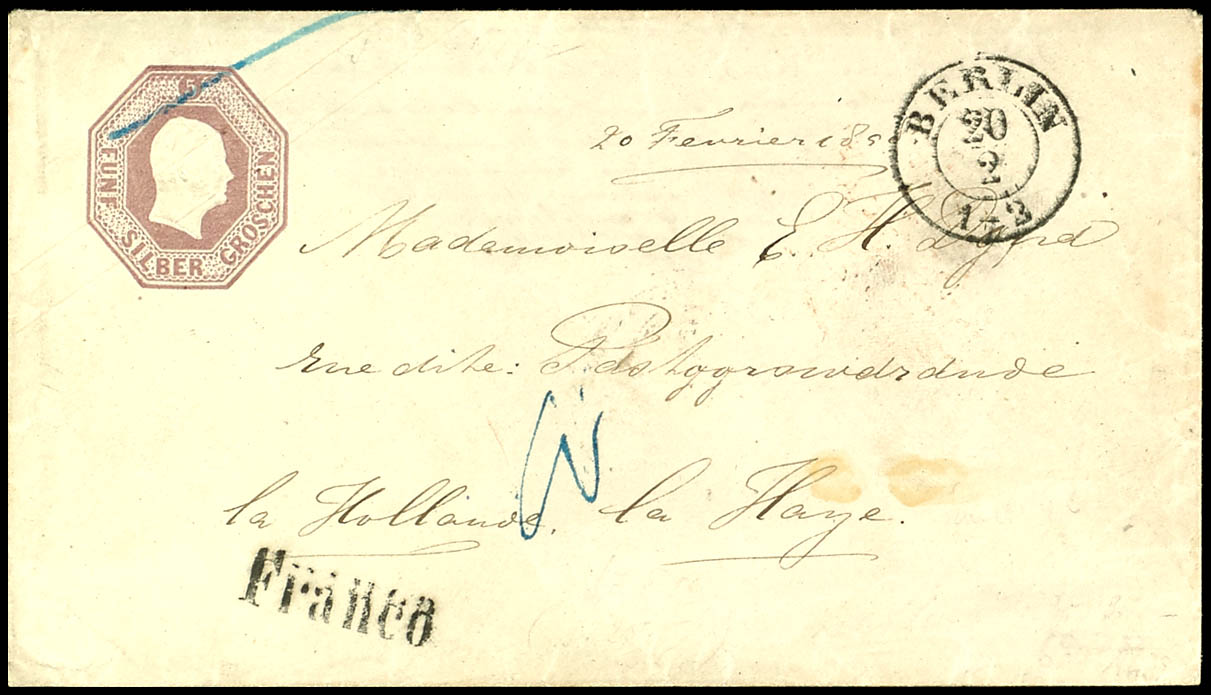 5
FÜNF SILBER GROSCHEN
BERLIN
20
2
1-2
20 Fevrier 185
Mademoiselle E. H.
rue dite:
la Hollande, la Haye.
Franco